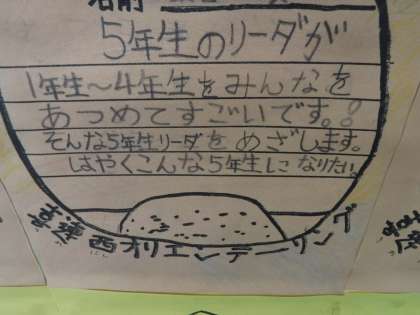 名前
5年生のリーダが
1年生〜4年生をみんなを
あつめてすごいです。
そんな5年生リーダをめざします。
はやくこんな5年生になりたい。
喜連西オリエンテーリング